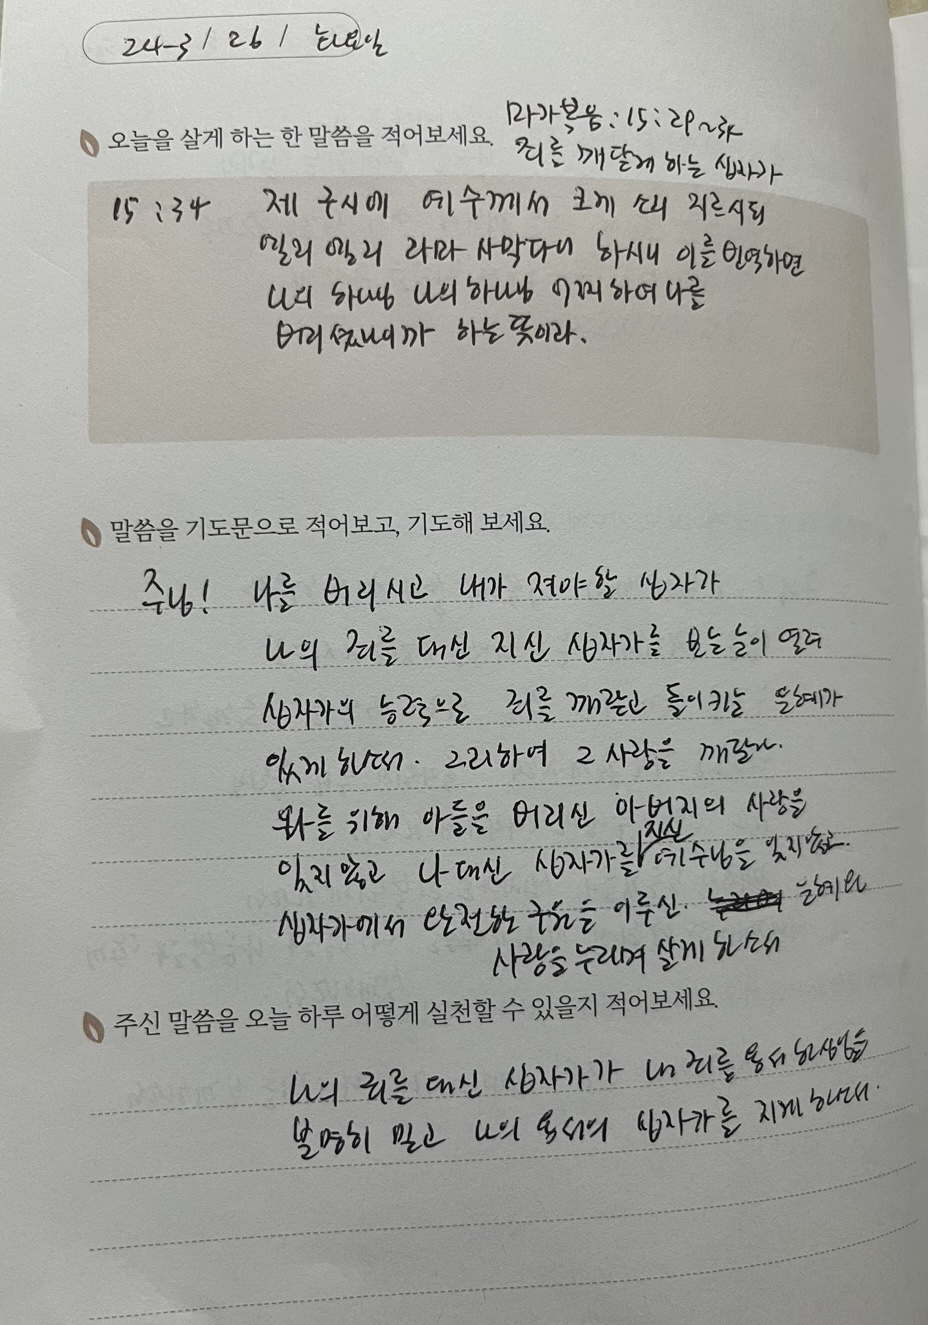 24-3 / 26 / 화요일
마가복음 : 15 : 29~34
오늘을 살게 하는 한 말씀을 적어보세요.
죄를 깨닫게 하는 십자가
15 : 34 제 구시에 예수께서 크게 소리 지르시되
엘리 엘리 라마 사박다니 하시니 이를 번역하면
나의 하나님 나의 하나님 어찌하여 나를
버리셨나이까 하는 뜻이라.
말씀을 기도문으로 적어보고, 기도해 보세요.
주님! 나를 버리시고 내가 져야 할 십자가
나의 죄를 대신 지신 십자가를 보는 눈이 열려
십자가의 능력으로 죄를 깨닫고 돌이키는 은혜가
있게 하소서. 그리하여 그 사랑을 깨달아.
위해 아들을 버리신 아버지의 사랑을
잊지 않고 나 대신 십자가를 지신 예수님을 잊지 않고.
십자가에서 완전한 구원을 이루신. 은혜와
사랑을 누리며 살게 하소서
주신 말씀을 오늘 하루 어떻게 실천할 수 있을지 적어보세요.
나의 죄를 대신 십자가가 내 죄를 용서하셨음을
분명히 믿고 나의 용서의 십자가를 지게 하소서.